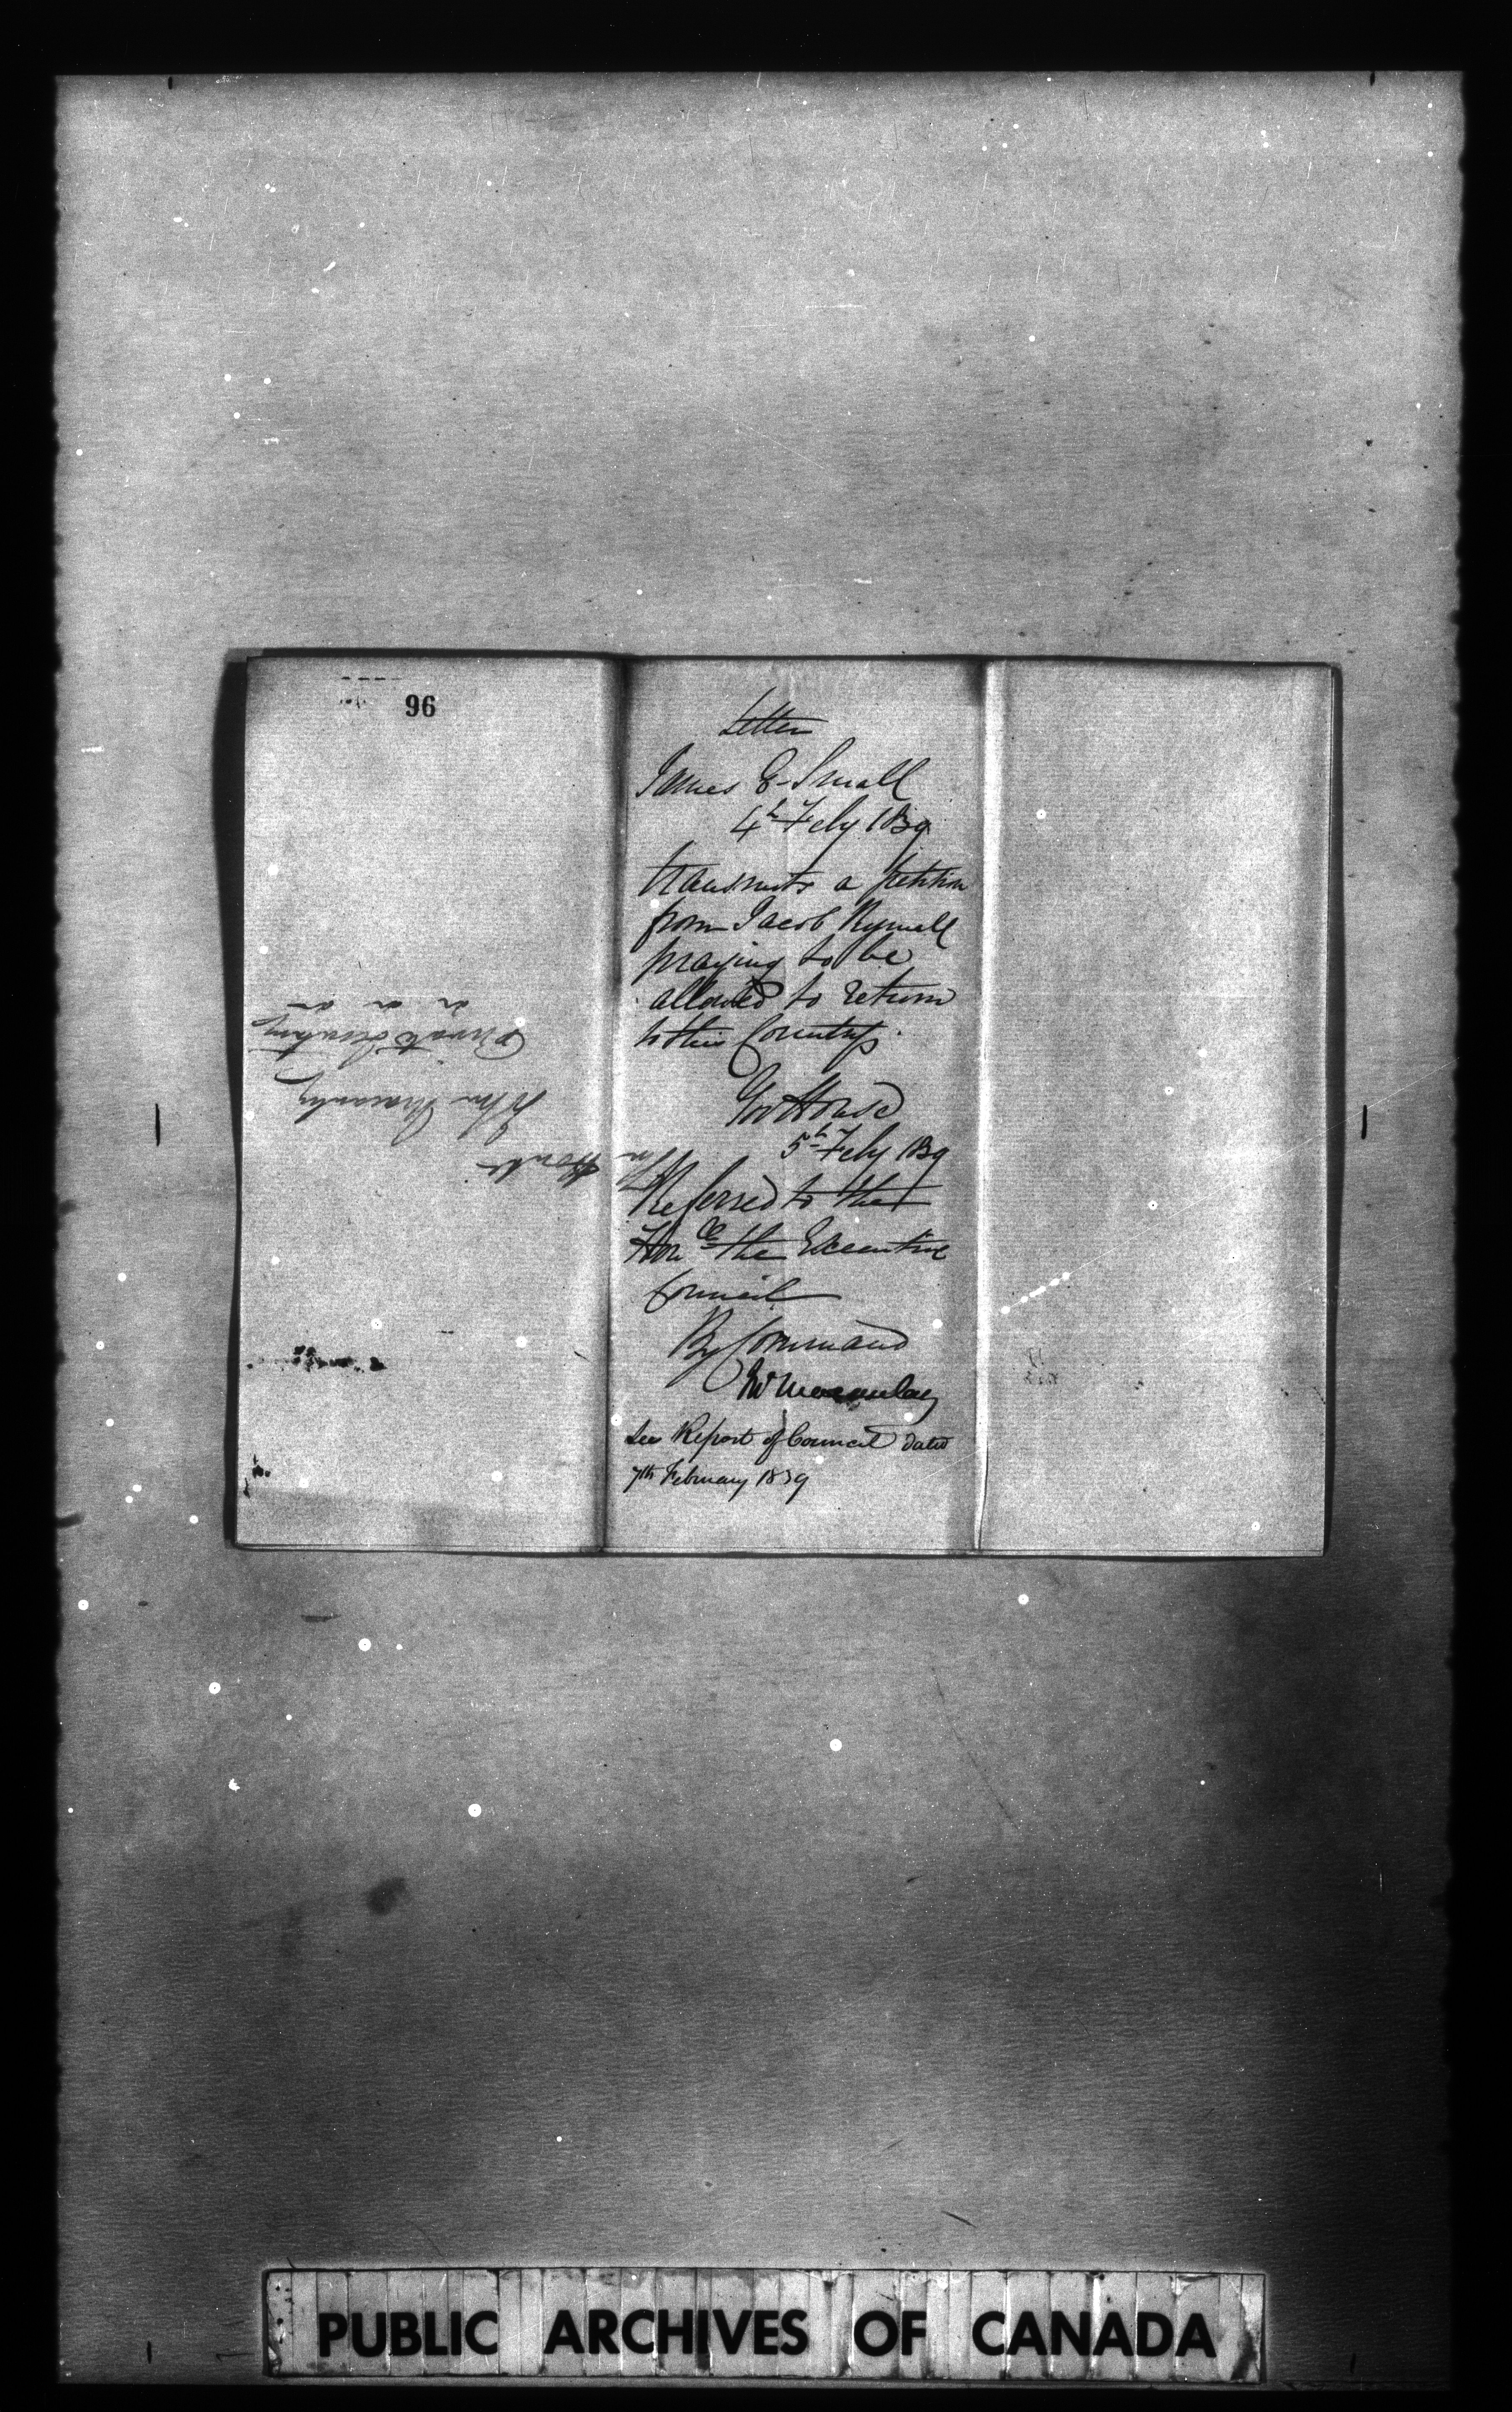 96
Letter
James E Small
4th Feby 1839
transmits a petition
from Jacob Rymall
praying to be
allowed to return
to this Country.
Gov House
5th Feby 1839
Referred to the
Honble the Executive
Council
By Command
Jno Macaulay
See Report of Council dated
7th February 1839
The Honble
John Macaulay
Private Secretary
PUBLIC ARCHIVES OF CANADA